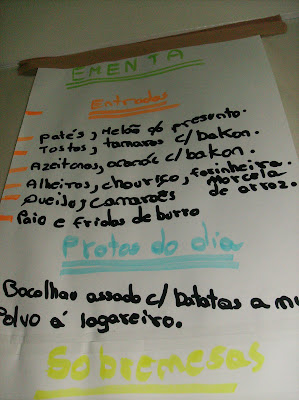 EMENTA
Entradas
Patés, Melão c/ presunto.
Tostas, tamaras c/bakon.
Azeitonas, c/bakon.
Alheiras, chouriço, farinheira.
Queijo, camarões Morcela de arroz.
Paio e fridas de burro
Pratos do dia
Bacalhau assado c/ batatas a mu
Polvo á lagareiro.
Sobremesas